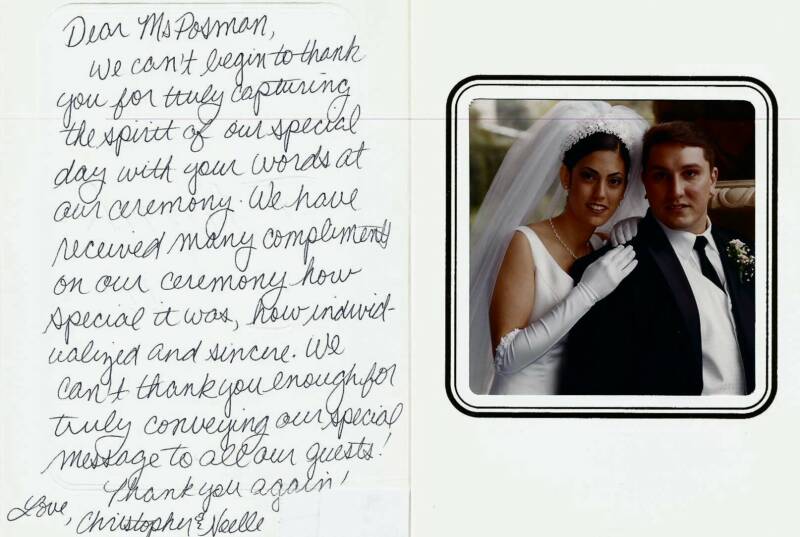 Dear Ms Posman,
We can't begin to thank
you for truly capturing
the spirit of our special
day with your words at
our ceremony. We have
received many compliments
on our ceremony how
special it was, how individ-
ualized and sincere. We
can't thank you enough for
truly conveying our special
message to all our guests!
Thank you again!
Love,
Christopher & Noelle